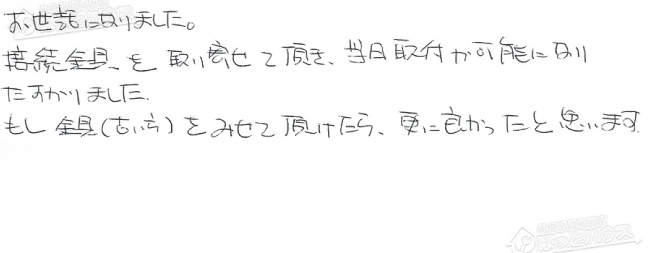 お世話になりました。
接続金具、を取り寄せて頂き、当日取付が可能になり
たすかりました.
もし金具(古い方)をみせて頂けたら、更に良かったと思います.